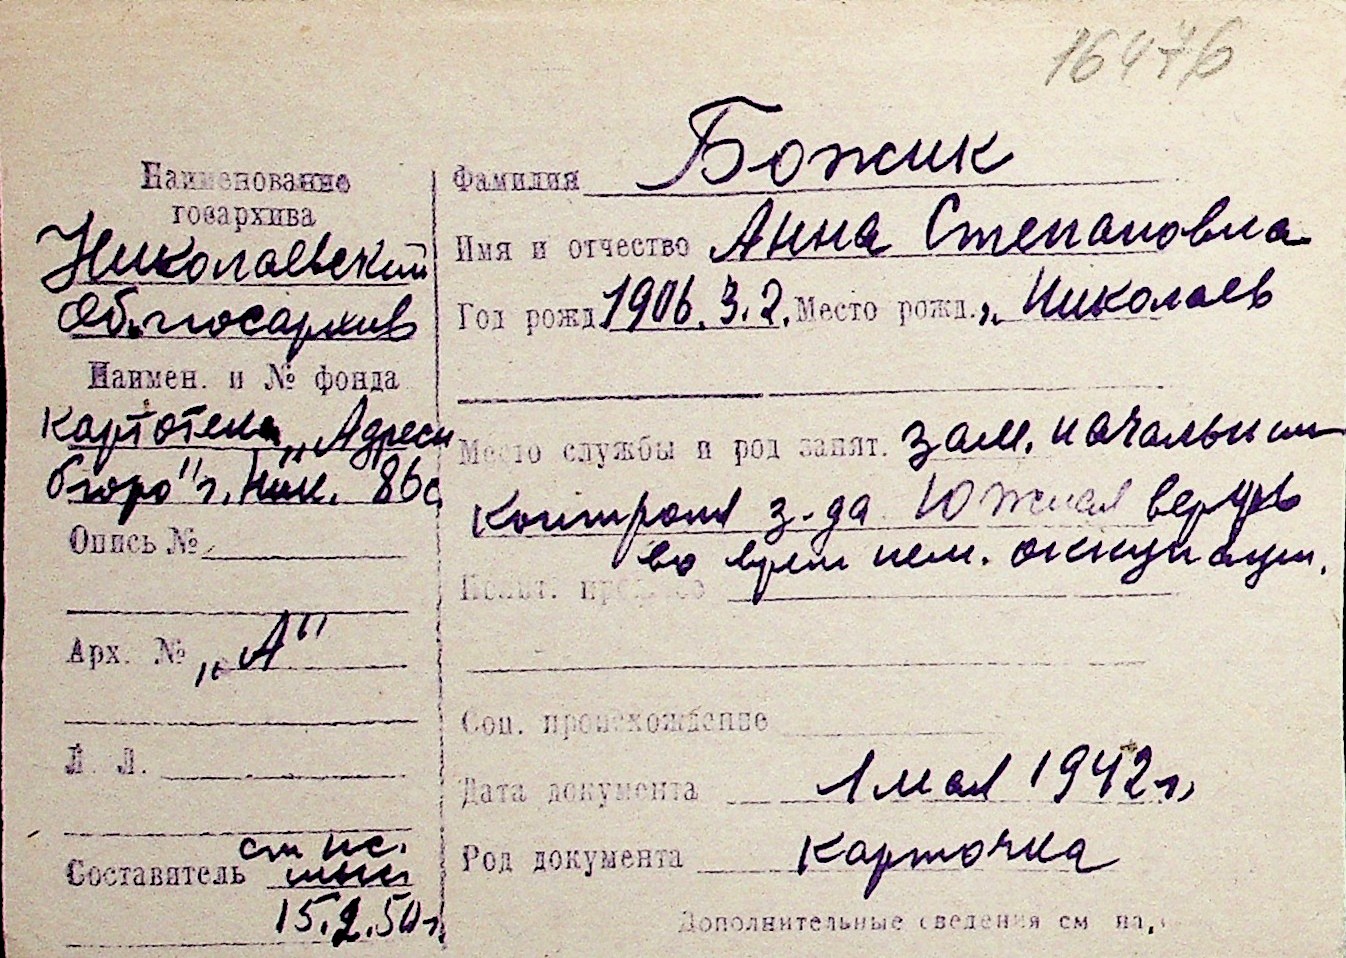 16476
Наименование
госархива
Николаевский
Облгосархив
Наимен. и № фонда
Картотека „Адресн
бюро" г. Ник. 86с
Опись №
Арх. № „А"
Л. Л.
Составитель
15.2.50г.
Фамилия Божик
Имя и отчество Анна Степановна
Год рожд 1906. 3. 2. Место рожд. „ Николаев
Место службы и род занят. зам. начальник
контроля з-да Южная верфь
во время нем. оккупации.
Соц. происхождение
Дата документа 1 мая 1942 г,
Род документа карточка
Дополнительные сведения см на